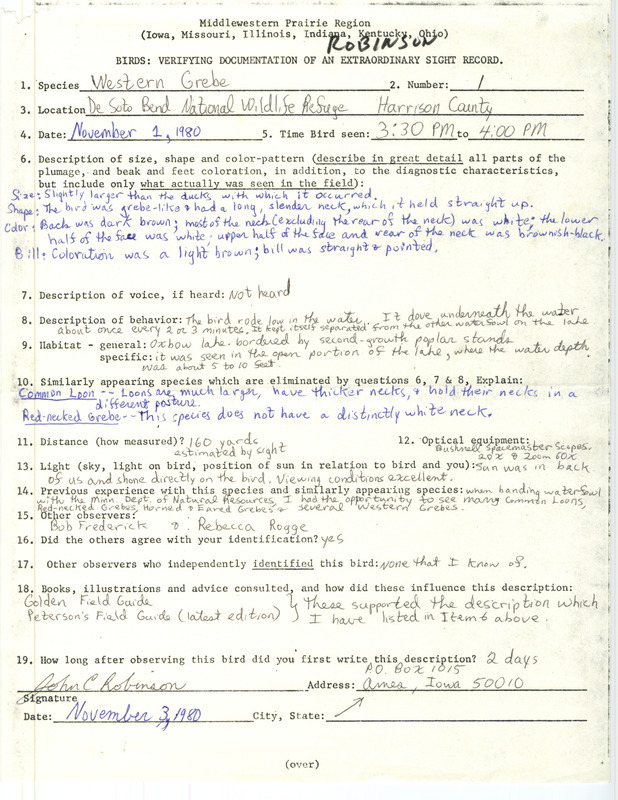 Middlewestern Prairie Region
(Iowa, Missouri, Illinois, Indiana, Kentucky, Ohio)
ROBINSON
BIRDS: VERIFYING DOCUMENTATION OF AN EXTRAORDINARY SIGHT RECORD.
1. Species Western Grebe 2. Number: 1
3. Location De Soto Bend National Wildlife Refuge Harrison County
4. Date: November 1, 1980 5. Time Bird seen: 3:30 PM to 4:00 PM
6. Description of size, shape and color-pattern (describe in great detail all parts of the
plumage, and beak and feet coloration, in addition, to the diagnostic characteristics,
but include only what actually was seen in the field):
Size: Slightly larger than the ducks with which it occurred.
Shape: The bird was grebe-like & had a long, slender neck, which it held straight up.
Color: Back was dark brown; most of the neck (excluding the rear of the neck) was white; the lower
half of the face was white; upper half of the face and rear of the neck was brownish-black.
Bill: Coloration was a light brown; bill was straight & pointed.
7. Description of voice, if heard: Not heard
8. Description of behavior: The bird rode low in the water. It dove underneath the water
about once every 2 or 3 minutes. It kept itself separated from the other waterfowl on the lake
9. Habitat - general: Oxbow lake bordered by second-growth poplar stands
specific: it was seen in the open portion of the lake, where the water depth
was about 5 to 10 feet.
10. Similarly appearing species which are eliminated by questions 6, 7 & 8, Explain:
Common Loon -- Loons are much larger, have thicker necks, & hold their necks in a
different posture.
Red-necked Grebe -- This species does not have a distinctly white neck.
11. Distance (how measured)? 160 yards
estimated by sight
12. Optical equipment:
Bushnell Spacemaster Scopes.
20x & zoom 60x
13. Light (sky, light on bird, position of sun in relation to bird and you): Sun was in back
of us and shone directly on the bird. Viewing conditions excellent.
14. Previous experience with this species and similarly appearing species: when banding waterfowl
with the Minn. Dept. of Natural Resources, I had the opportunity to see many Common Loons,
Red-necked Grebes, Horned & Eared Grebes & several Western Grebes.
15. Other observers:
Bob Frederick & Rebecca Rogge
16. Did the others agree with your identification? yes
17. Other observers who independently identified this bird: None that I know of.
18. Books, illustrations and advice consulted, and how did these influence this description:
Golden Field Guide
Peterson's Field Guide (latest edition) } These supported the description which
I have listed in Item 6 above.
19. How long after observing this bird did you first write this description? 2 days
P.O. Box 1015
John C Robinson Address: Ames, Iowa 50010
Signature
Date: November 3, 1980 City, State:
(over)